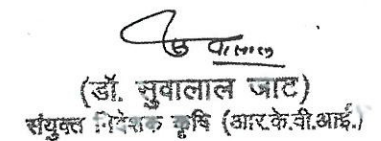 (डॉ. सुवालाल जाट)
संयुक्त निदेशक कृषि (आर.के.वी.आई.)